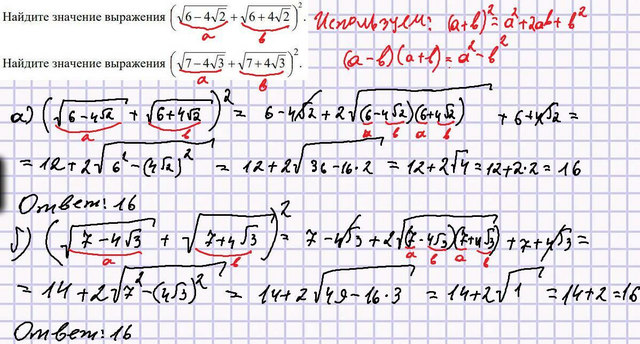 Найдите значение выражения (√(6−4√2) + √(6+4√2))².
a b
Используем: (a+b)² = a² + 2ab + b²
Найдите значение выражения (√(7−4√3) + √(7+4√3))².
a b
(a−b)(a+b) = a² − b²
а) (√(6−4√2) + √(6+4√2))² = 6−4√2 + 2√((6−4√2)(6+4√2)) + 6+4√2 =
a b a b a b
= 12+2√(6²−(4√2)²) = 12+2√(36−16·2) = 12+2√4 = 12+2·2 = 16
Ответ: 16
б) (√(7−4√3) + √(7+4√3))² = 7−4√3 + 2√((7−4√3)(7+4√3)) + 7+4√3 =
a b a b a b
= 14+2√(7²−(4√3)²) = 14+2√(49−16·3) = 14+2√1 = 14+2=16
Ответ: 16